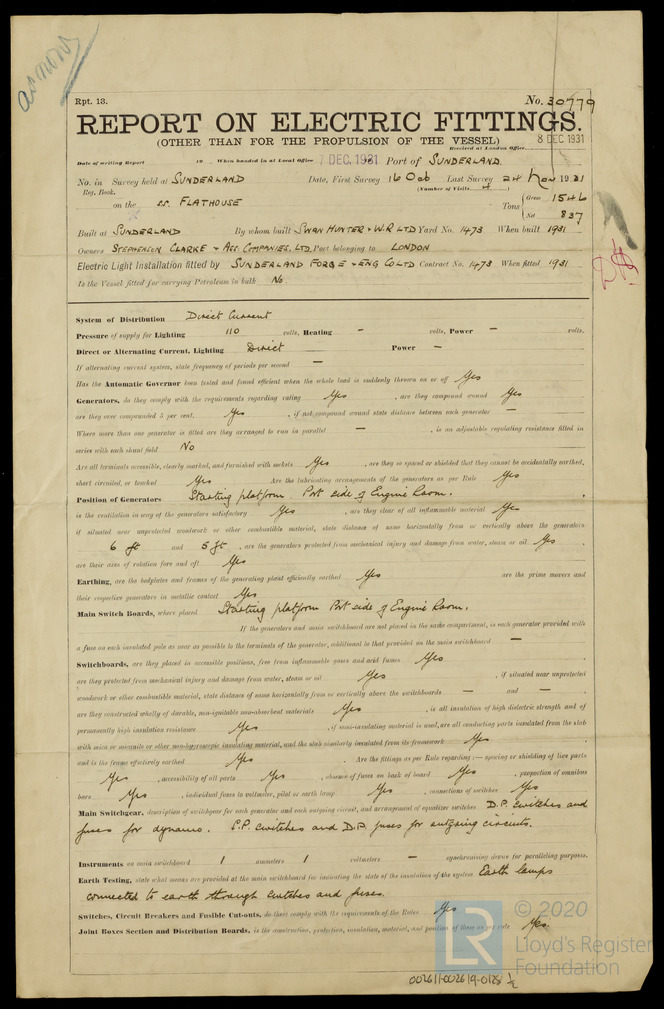 Rpt. 13.
No. 30779
REPORT ON ELECTRIC FITTINGS.
(OTHER THAN FOR THE PROPULSION OF THE VESSEL)
8 DEC 1931
Received at London Office
Date of writing Report 19 When handed in at Local Office 7 DEC. 1931 Port of SUNDERLAND.
No. in Survey held at SUNDERLAND Date, First Survey 16 Oct Last Survey 24 Nov 1931
Reg. Book. (Number of Visits 4 )
on the s.s. FLATHOUSE Tons { Gross 1546
Net 837
Built at SUNDERLAND By whom built SWAN HUNTER & W.R LTD Yard No. 1473 When built 1931
Owners STEPHENSON CLARKE & ASS. COMPANIES. LTD. Port belonging to LONDON
Electric Light Installation fitted by SUNDERLAND FORGE & ENG CO LTD Contract No. 1473 When fitted 1931
Is the Vessel fitted for carrying Petroleum in bulk No
System of Distribution Direct Current
Pressure of supply for Lighting 110 volts, Heating – volts, Power – volts.
Direct or Alternating Current, Lighting Direct Power –
If alternating current system, state frequency of periods per second –
Has the Automatic Governor been tested and found efficient when the whole load is suddenly thrown on or off Yes
Generators, do they comply with the requirements regarding rating Yes , are they compound wound Yes
are they over compounded 5 per cent. Yes , if not compound wound state distance between each generator –
Where more than one generator is fitted are they arranged to run in parallel – , is an adjustable regulating resistance fitted in
series with each shunt field No
Are all terminals accessible, clearly marked, and furnished with sockets Yes , are they so spaced or shielded that they cannot be accidentally earthed,
short circuited, or touched Yes Are the lubricating arrangements of the generators as per Rule Yes
Position of Generators Starting platform Port side of Engine Room.
is the ventilation in way of the generators satisfactory Yes , are they clear of all inflammable material Yes
if situated near unprotected woodwork or other combustible material, state distance of same horizontally from or vertically above the generators
6 ft and 5 ft , are the generators protected from mechanical injury and damage from water, steam or oil Yes
are their axes of rotation fore and aft Yes
Earthing, are the bedplates and frames of the generating plant efficiently earthed Yes are the prime movers and
their respective generators in metallic contact Yes
Main Switch Boards, where placed Starting platform Port side of Engine Room.
If the generators and main switchboard are not placed in the same compartment, is each generator provided with
a fuse on each insulated pole as near as possible to the terminals of the generator, additional to that provided on the main switchboard –
Switchboards, are they placed in accessible positions, free from inflammable gases and acid fumes Yes
are they protected from mechanical injury and damage from water, steam or oil Yes , if situated near unprotected
woodwork or other combustible material, state distance of same horizontally from or vertically above the switchboards – and –
are they constructed wholly of durable, non-ignitable non-absorbent materials Yes , is all insulation of high dielectric strength and of
permanently high insulation resistance Yes , if semi-insulating material is used, are all conducting parts insulated from the slab
with mica or micanite or other non-hygroscopic insulating material, and the slab similarly insulated from its framework Yes
and is the frame effectively earthed Yes . Are the fittings as per Rule regarding :— spacing or shielding of live parts
Yes , accessibility of all parts Yes , absence of fuses on back of board Yes , proportion of omnibus
bars Yes , individual fuses to voltmeter, pilot or earth lamp Yes , connections of switches Yes
Main Switchgear, description of switchgear for each generator and each outgoing circuit, and arrangement of equalizer switches D.P. switches and
fuses for dynamo. S.P. switches and D.P. fuses for outgoing circuits.
Instruments on main switchboard 1 ammeters 1 voltmeters – synchronising device for paralleling purposes.
Earth Testing, state what means are provided at the main switchboard for indicating the state of the insulation of the system Earth lamps
connected to earth through switches and fuses.
Switches, Circuit Breakers and Fusible Cut-outs, do these comply with the requirements of the Rules Yes
Joint Boxes Section and Distribution Boards, is the construction, protection, insulation, material, and position of these as per rule Yes.
LR
© 2020
Lloyd's Register
Foundation
002611-002619-0128 1/2